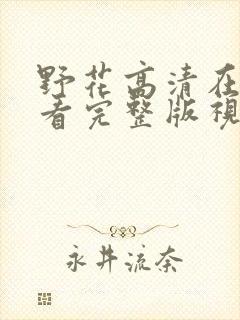 野花高清在
看完整版視
永井流奈